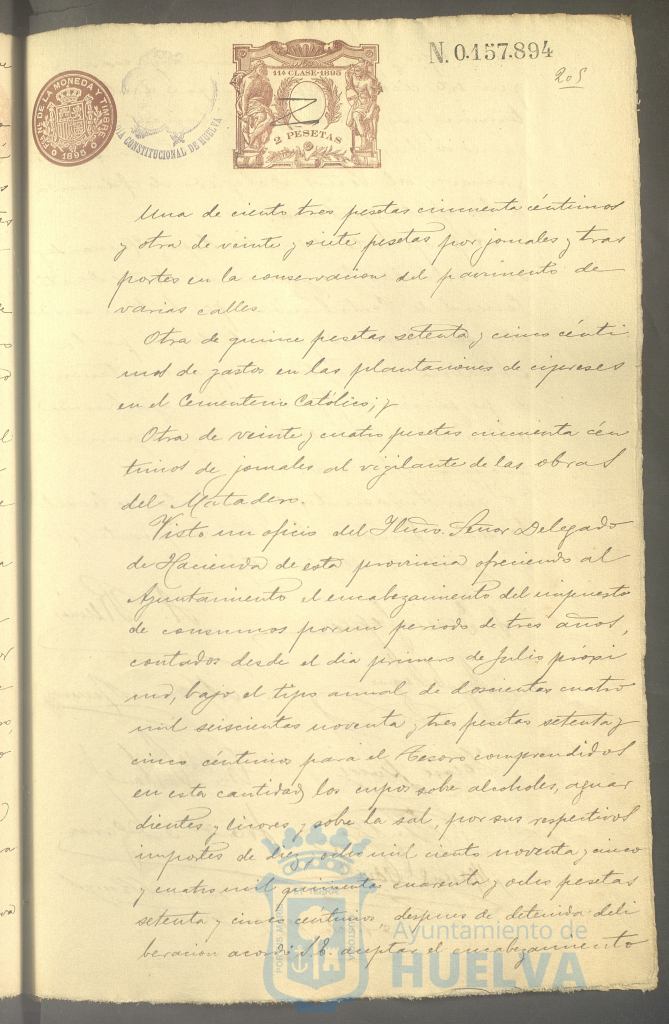 N. 0.157.894
205
11ª CLASE-1895
2 PESETAS
DE LA MONEDA Y TIMBRE
1895
CONSTITUCIONAL DE HUELVA
Una de ciento tres pesetas cincuenta céntimos
y otra de veinte y siete pesetas por jornales y tras
portes en la conservacion del pavimento de
varias calles.
Otra de quince pesetas setenta y cinco cénti
mos de gastos en las plantaciones de cipreses
en el Cementerio Católico; y
Otra de veinte y cuatro pesetas cincuenta cén
timos de jornales al vigilante de las obras
del Matadero.
Visto un oficio del Iltmo. Señor Delegado
de Hacienda de esta provincia ofreciendo al
Ayuntamiento el encabezamiento del impuesto
de consumos por un periodo de tres años,
contados desde el dia primero de Julio próxi
mo, bajo el tipo anual de doscientas cuatro
mil seiscientas noventa y tres pesetas setenta y
cinco céntimos para el Tesoro comprendidos
en esta cantidad los cupos sobre alcoholes, aguar
dientes y licores y sobre la sal, por sus respectivos
importes de diez y ocho mil ciento noventa y cinco
y cuatro mil quinientas cuarenta y ocho pesetas
setenta y cinco céntimos, despues de detenida deli
beracion acordó S.E. aceptar el encabezamiento
Ayuntamiento de
HUELVA